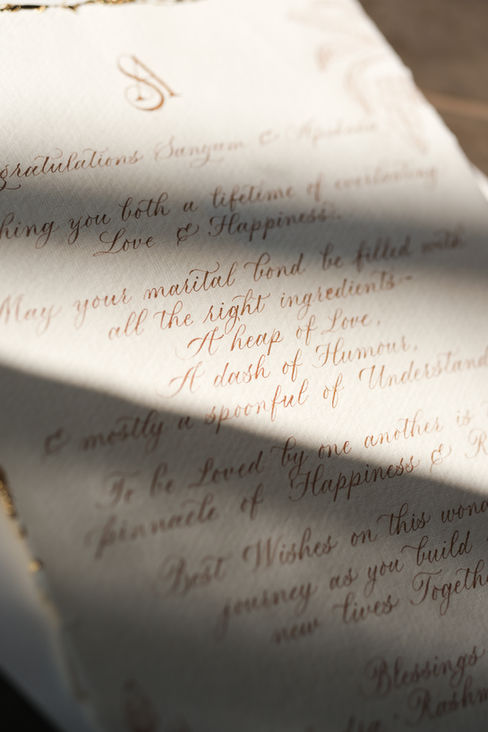 SA
gratulations Sangam &
hing you both a lifetime of everlasting
Love & Happiness.
May your marital bond be filled with
all the right ingredients--
A heap of Love,
A dash of Humour,
& mostly a spoonful of Understand
To be Loved by one another is
pinnacle of Happiness & R
Best Wishes on this wond
journey as you build
new lives Togethe
Blessings
Rashm